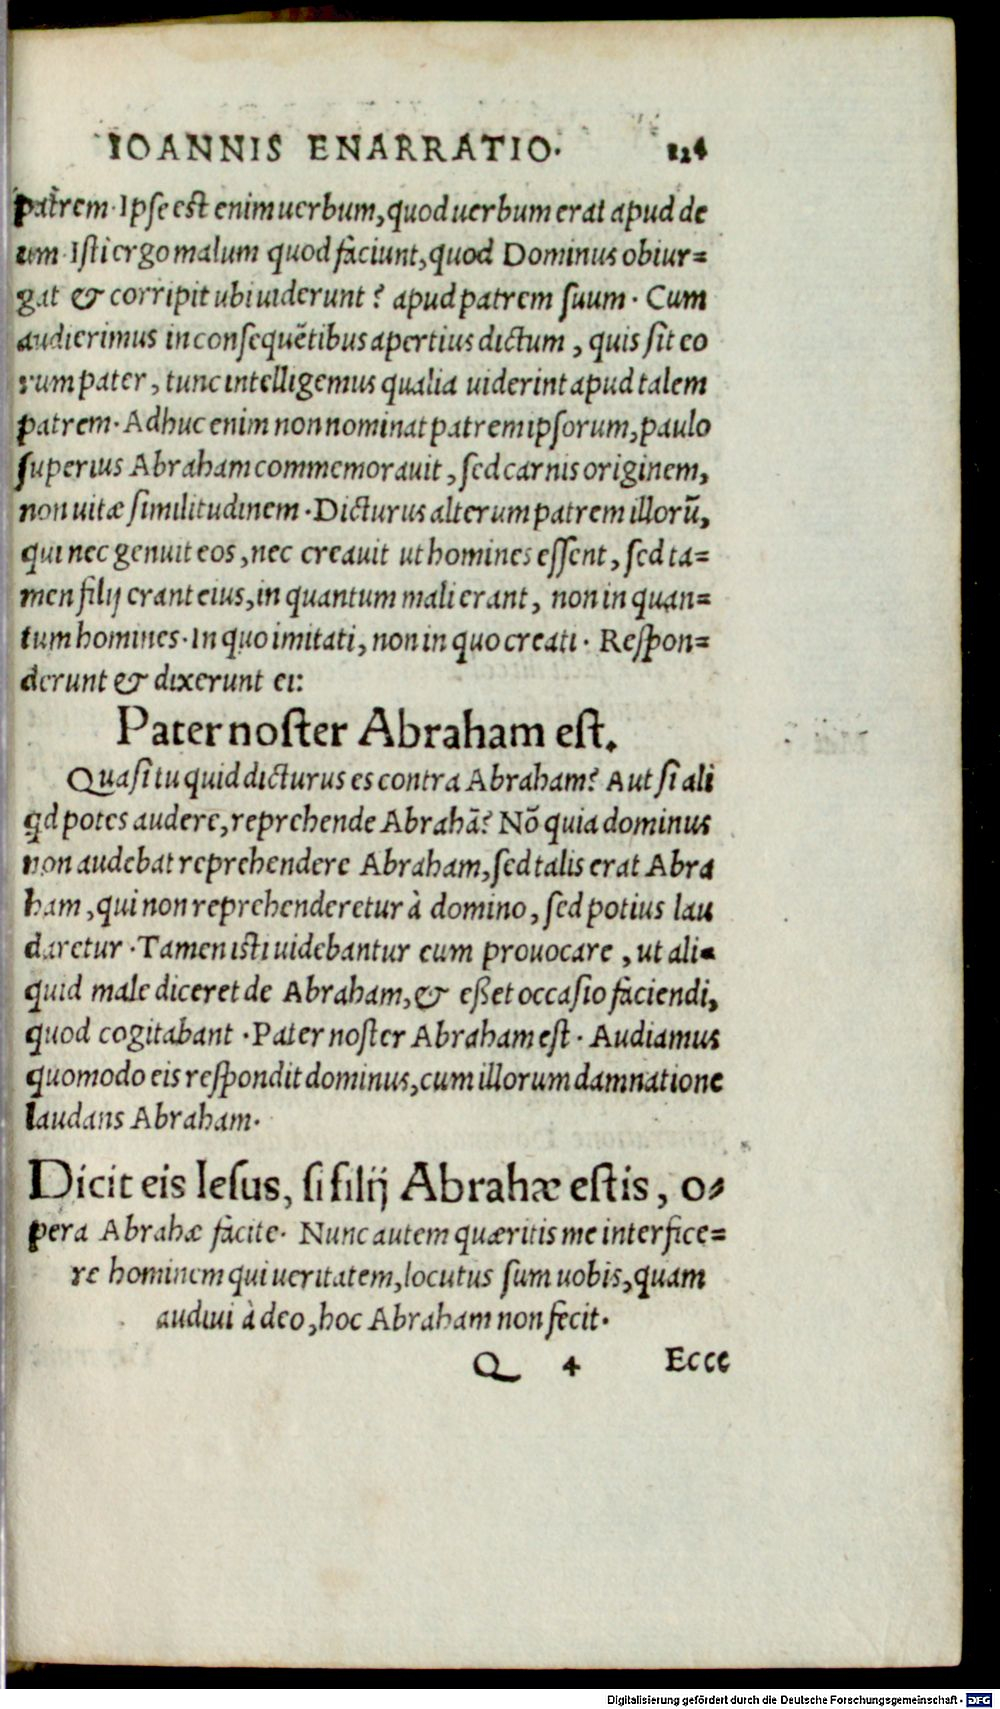 IOANNIS ENARRATIO. 124
patrem. Ipse est enim uerbum, quod uerbum erat apud de
um. Isti ergo malum quod faciunt, quod Dominus obiur=
gat & corripit ubi uiderunt? apud patrem suum. Cum
audierimus in consequẽtibus apertius dictum, quis sit eo
rum pater, tunc intelligemus qualia uiderint apud talem
patrem. Adhuc enim non nominat patrem ipsorum, paulo
superius Abraham commemorauit, sed carnis originem,
non uitæ similitudinem. Dicturus alterum patrem illorũ,
qui nec genuit eos, nec creauit ut homines essent, sed ta=
men filij erant eius, in quantum mali erant, non in quan=
tum homines. In quo imitati, non in quo creati. Respon=
derunt & dixerunt ei:
Pater noster Abraham est.
Quasi tu quid dicturus es contra Abraham? Aut si ali
qd potes audere, reprehende Abrahã? Nõ quia dominus
non audebat reprehendere Abraham, sed talis erat Abra
ham, qui non reprehenderetur à domino, sed potius lau
daretur. Tamen isti uidebantur eum prouocare, ut ali=
quid male diceret de Abraham, & eßet occasio faciendi,
quod cogitabant. Pater noster Abraham est. Audiamus
quomodo eis respondit dominus, cum illorum damnatione
laudans Abraham.
Dicit eis Iesus, si filij Abrahæ estis, o=
pera Abrahæ facite. Nunc autem quæritis me interfice=
re hominem qui ueritatem, locutus sum uobis, quam
audiui à deo, hoc Abraham non fecit.
Q 4 Ecce
Digitalisierung gefördert durch die Deutsche Forschungsgemeinschaft - DFG